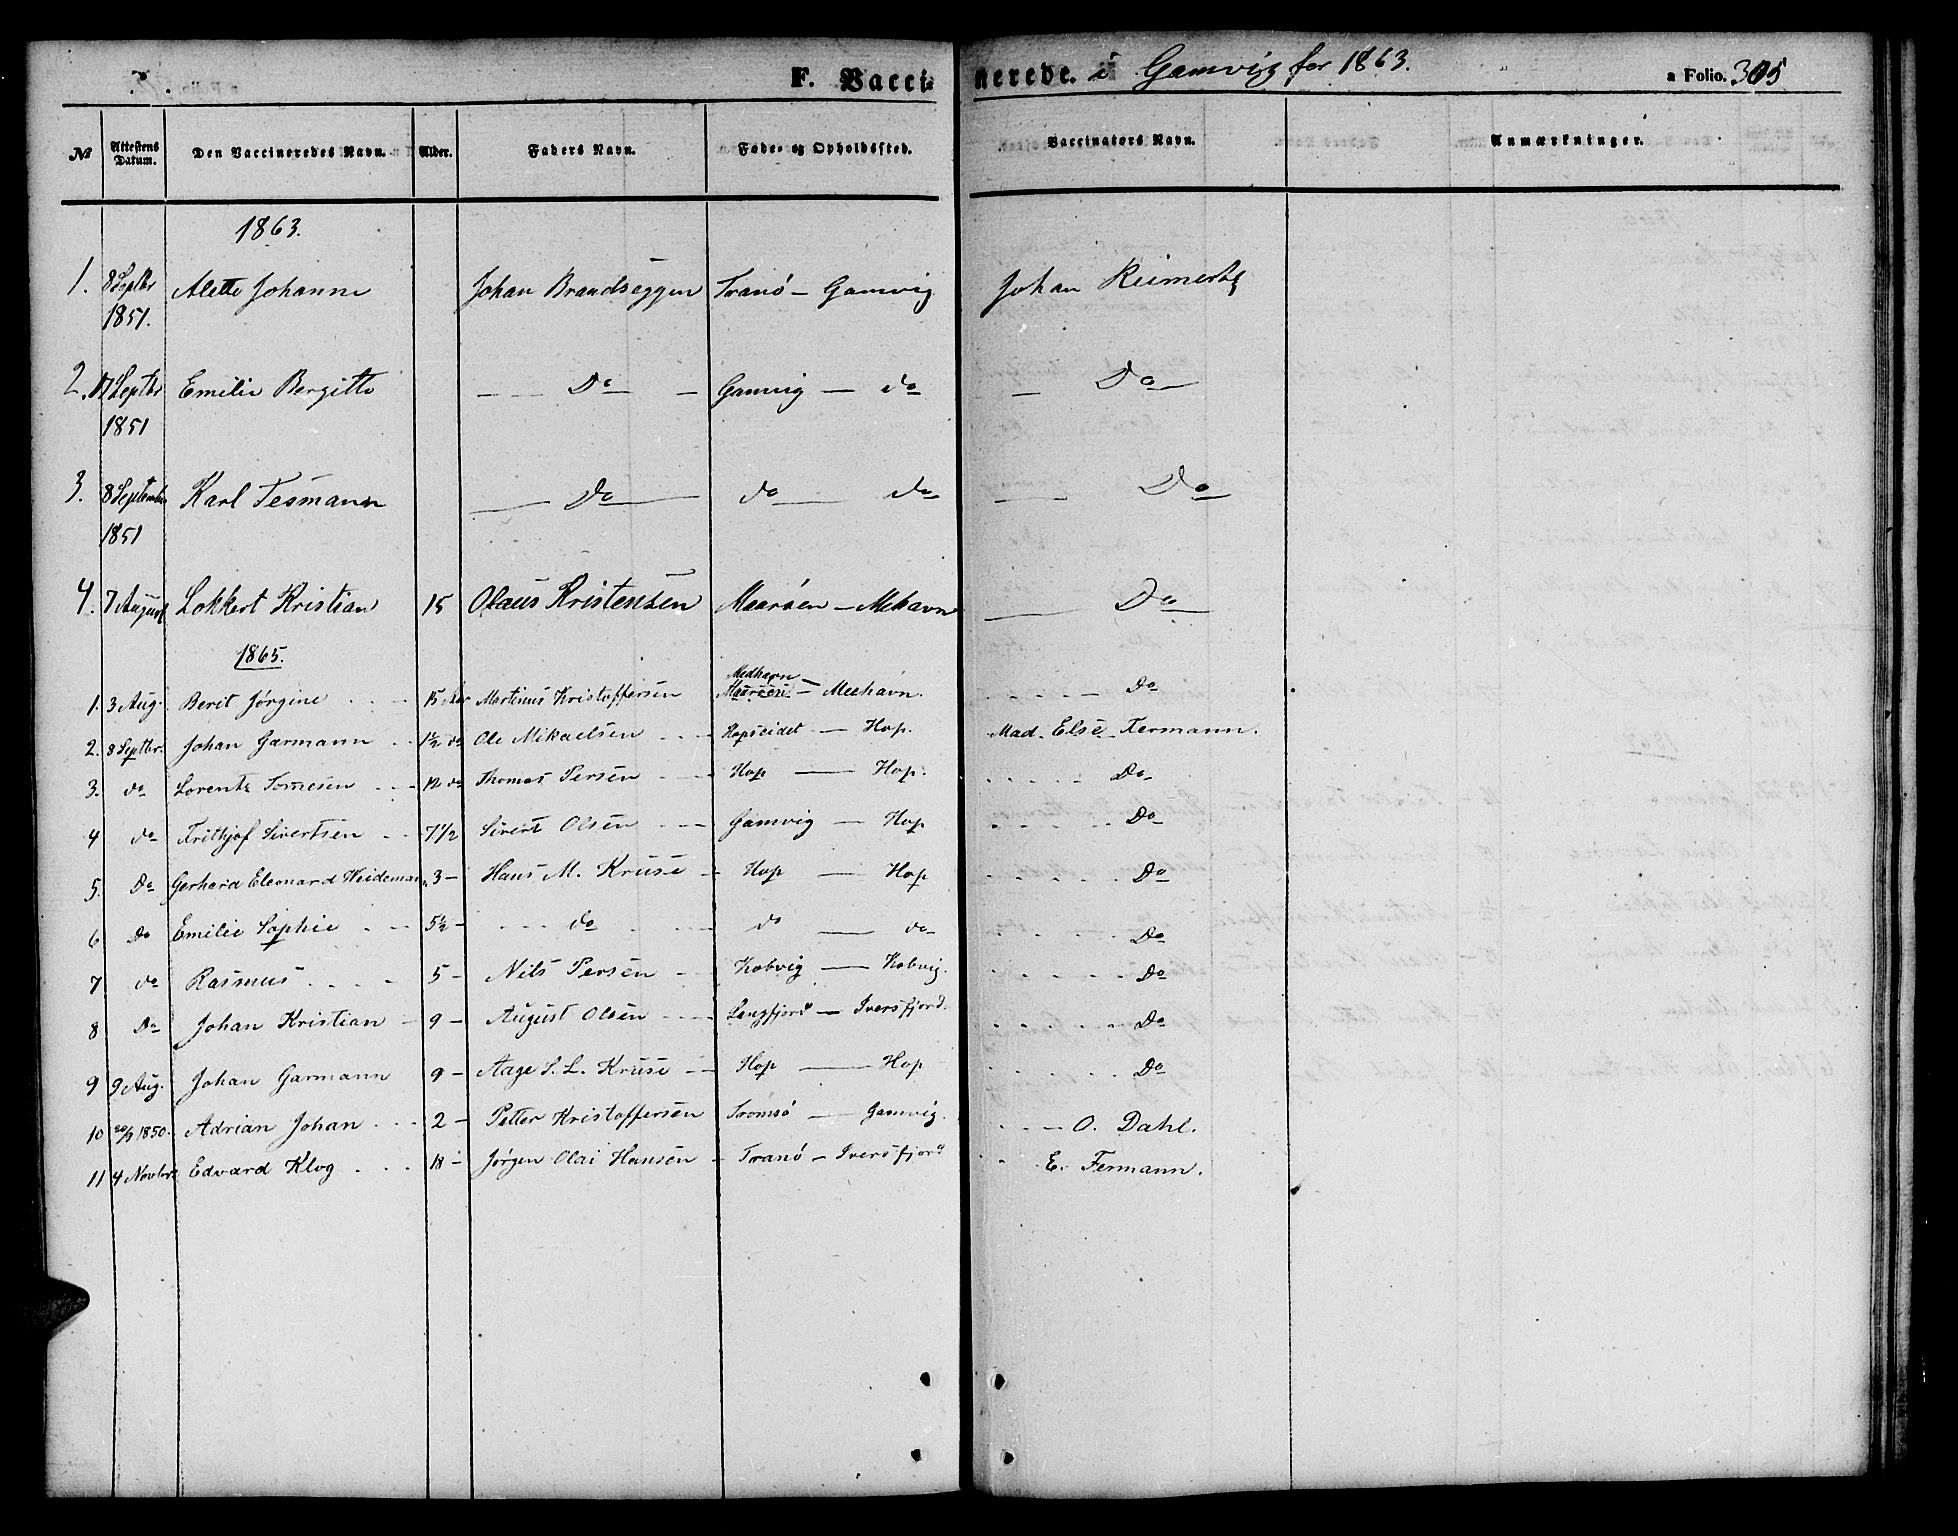 F. Vaccinerede. i Gamvig for 1863. a Folio. 305
№ Attestens Datum. Den Vaccineredes Navn. Alder. Faders Navn. Føde- og Opholdssted. Vaccinators Navn. Anmærkninger.
1863.
1. 8 Septbr 1851. Alette Johanne Johan Brandseggen Tranö – Gamvig Johan Reimertz
2. Septbr 1851 Emilie Bergitte – Do – Gamvig – do – Do –
3. 8 September 1851 Karl Tesmann – Do – do – do – Do –
4. 7 August Lokkert Kristian 15 Olaus Kristensen Maarsen – Mehavn – Do –
1865.
1. 3 Aug. Berit Jørgine 15 Aar Martinus Kristoffersen Medhavn – Meehavn. Do
2. 8 Septbr. Johan Garmann 1½ do Ole Mikaelsen Hopseidet – Hop. Mad. Else Fermann.
3. do Lorentz Tomesen 12 do Thomas Persen Hop – Hop. Do
4 do Frithjof Sivertsen 7 1/2 Sivert Olsen Gamvig – Hop Do
5. Do Gerhard Eleonard Weideman 3 – Hans M. Kruse – Hop – Hop Do
6 Do Emilie Sophie 5½ – do do – do Do
7 do Rasmus 5 – Nils Persen Kobvig – Kobvig. Do
8 Do Johan Kristian – 9 – August Olsen Langfjord – Iversfjord. Do
9 9 Aug. Johan Garmann 9 – Aage S. L. Kruse – Hop – Hop Do
10 20/9 1850. Adrian Johan 2 – Petter Kristoffersen Tromsö – Gamvig. O. Dahl.
11 4 Novbr Edvard Klog 18 – Jørgen Olai Hansen – Tranö – Iversfjord E. Fermann.